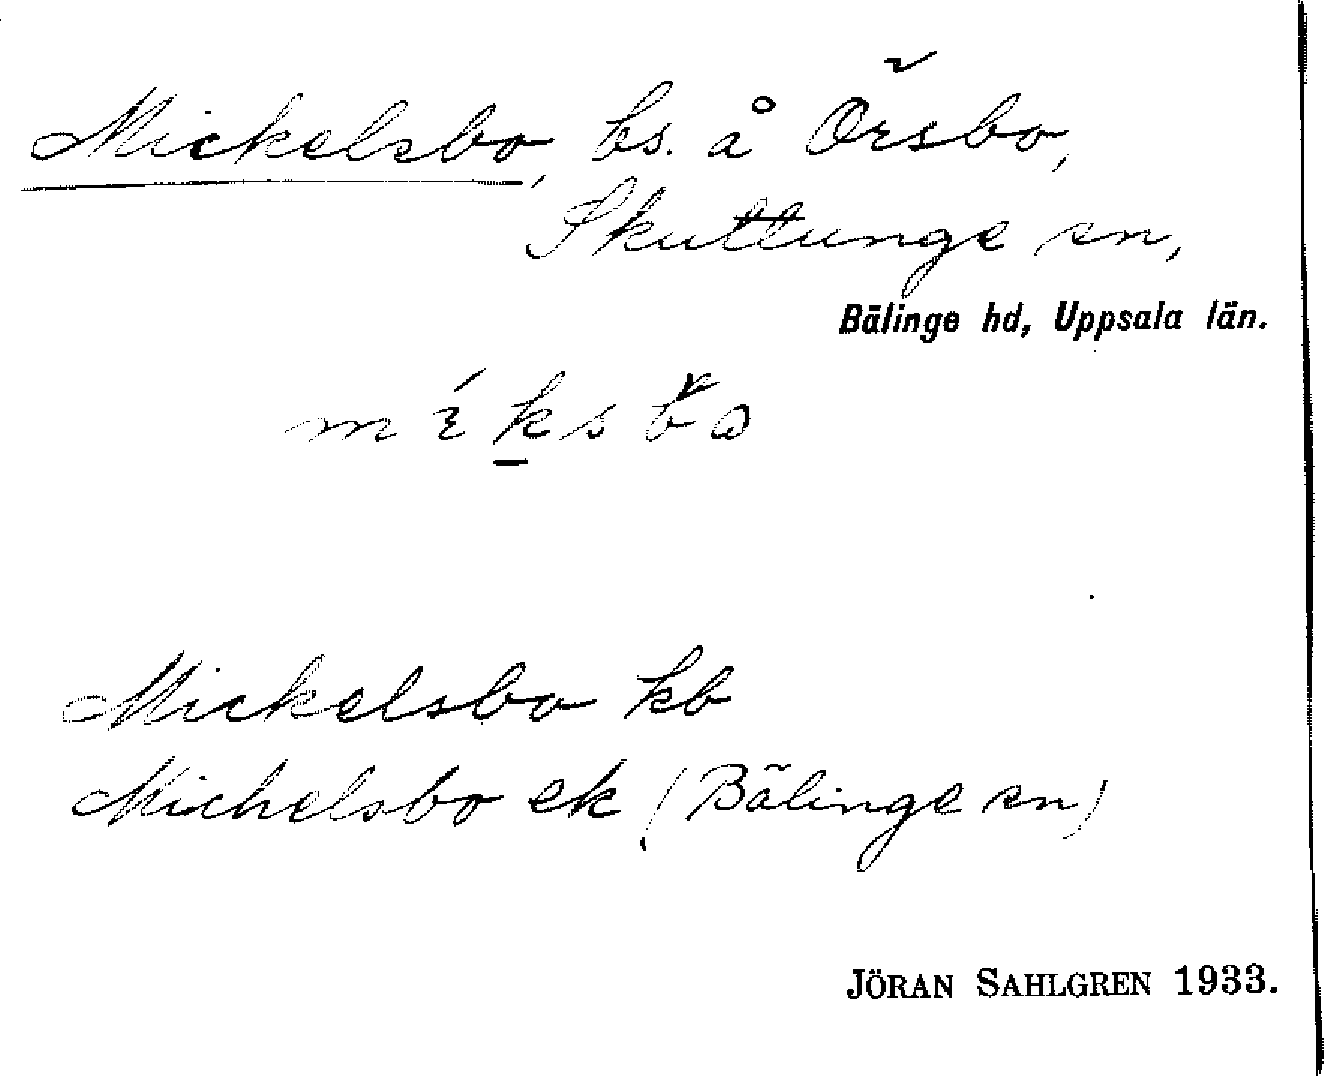 Mickelsbo, bs. å Örsbo,
Skuttunge sn,
Bälinge hd, Uppsala län.
Mickelsbo kb
Michelsbo ek (Bälinge sn)
JÖRAN SAHLGREN 1933.